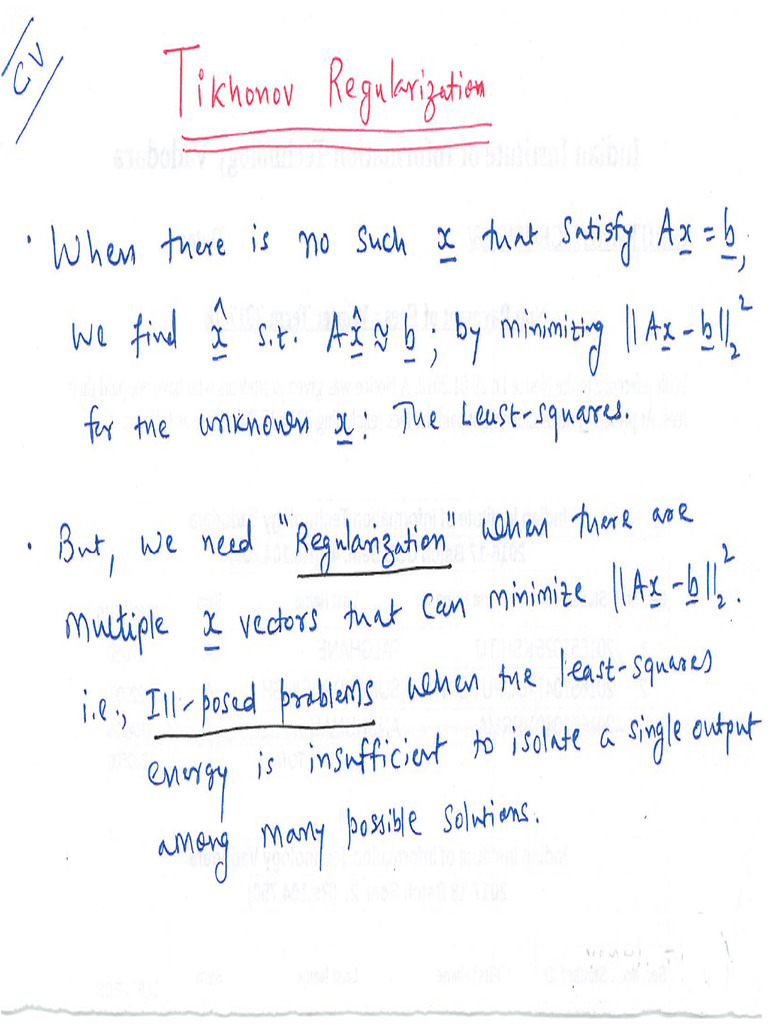 CV
Tikhonov Regularization
• When there is no such x that satisfy Ax = b,
we find x̂ s.t. Ax̂ ≈ b ; by minimizing ||Ax - b||₂²
for the unknown x. The Least-squares.
• But, we need "Regularization" when there are
multiple x vectors that can minimize ||Ax - b||₂².
i.e., Ill-posed problems when the least-squares
energy is insufficient to isolate a single output
among many possible solutions.